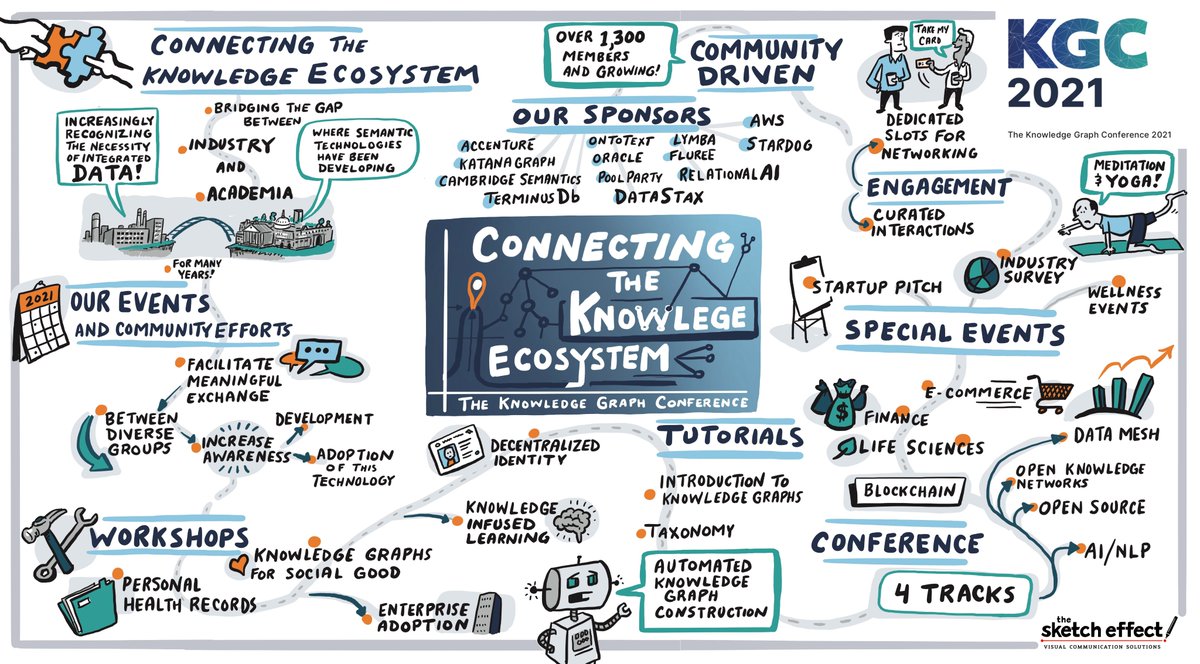 CONNECTING THE
KNOWLEDGE ECOSYSTEM
BRIDGING THE GAP
BETWEEN
INDUSTRY
AND
ACADEMIA
INCREASINGLY
RECOGNIZING
THE NECESSITY
OF INTEGRATED
DATA!
WHERE SEMANTIC
TECHNOLOGIES
HAVE BEEN
DEVELOPING
FOR MANY
YEARS!
OVER 1,300
MEMBERS
AND GROWING!
COMMUNITY
DRIVEN
OUR SPONSORS
ACCENTURE
KATANA GRAPH
CAMBRIDGE SEMANTICS
TERMINUSDb
ONTOTEXT
ORACLE
POOLPARTY
DATASTAX
LYMBA
FLUREE
RELATIONALAI
AWS
STARDOG
TAKE MY
CARD
DEDICATED
SLOTS FOR
NETWORKING
ENGAGEMENT
CURATED
INTERACTIONS
KGC
2021
The Knowledge Graph Conference 2021
MEDITATION
& YOGA!
CONNECTING
THE
KNOWLEGE
ECOSYSTEM
THE KNOWLEDGE GRAPH CONFERENCE
STARTUP PITCH
INDUSTRY
SURVEY
WELLNESS
EVENTS
SPECIAL EVENTS
2021
OUR EVENTS
AND COMMUNITY EFFORTS
FACILITATE
MEANINGFUL
EXCHANGE
BETWEEN
DIVERSE
GROUPS
INCREASE
AWARENESS
DEVELOPMENT
ADOPTION
OF THIS
TECHNOLOGY
WORKSHOPS
PERSONAL
HEALTH RECORDS
KNOWLEDGE GRAPHS
FOR SOCIAL GOOD
ENTERPRISE
ADOPTION
DECENTRALIZED
IDENTITY
KNOWLEDGE
INFUSED
LEARNING
TUTORIALS
INTRODUCTION TO
KNOWLEDGE GRAPHS
TAXONOMY
AUTOMATED
KNOWLEDGE
GRAPH
CONSTRUCTION
$
FINANCE
E-COMMERCE
LIFE SCIENCES
BLOCKCHAIN
CONFERENCE
4 TRACKS
DATA MESH
OPEN KNOWLEDGE
NETWORKS
OPEN SOURCE
AI/NLP
the
sketch effect
VISUAL COMMUNICATION SOLUTIONS